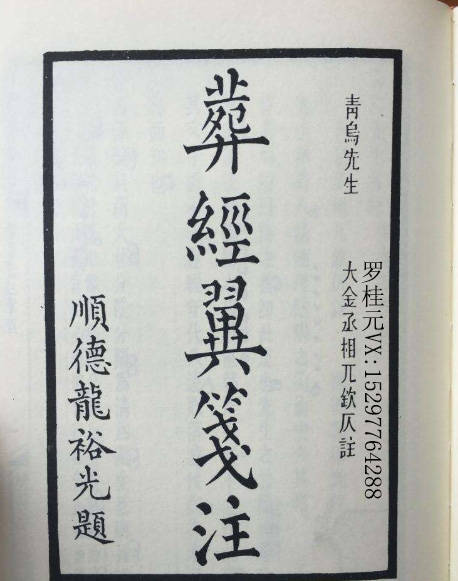 青烏先生
大金丞相兀欽仄註
罗桂元VX:15297764288
葬經翼箋注
順德龍裕光題